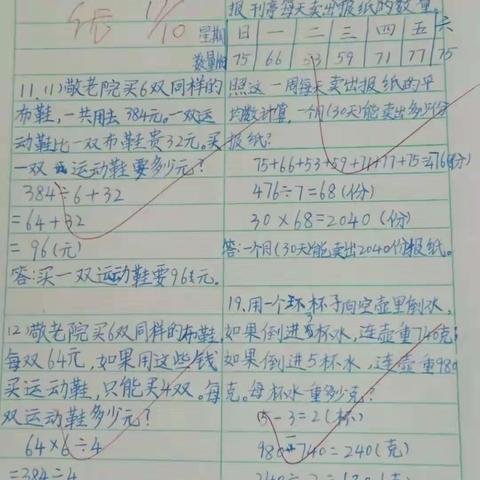 11.(1)敬老院买6双同样的
布鞋,一共用去384元。一双运
动鞋比一双布鞋贵32元。买
一双运动鞋要多少元?
384÷6+32
=64+32
=96(元)
答:买一双运动鞋要96元。
(2)敬老院买6双同样的布鞋,
每双64元,如果用这些钱
买运动鞋,只能买4双。每
双运动鞋多少元?
64×6÷4
=384÷4
报刊亭每天卖出报纸的数量。
星期 日 一 二 三 四 五 六
数量/份 75 66 53 59 71 77 75
照这一周每天卖出报纸的平
均数计算,一个月(30天)能卖出多少份
报纸?
75+66+53+59+71+77+75=476(份)
476÷7=68(份)
30×68=2040(份)
答:一个月(30天)能卖出2040份报纸。
19.用一个杯子向空壶里倒水,
如果倒进3杯水,连壶重740克;
如果倒进5杯水,连壶重980
克。每杯水重多少克?
5-3=2(杯)
980-740=240(克)